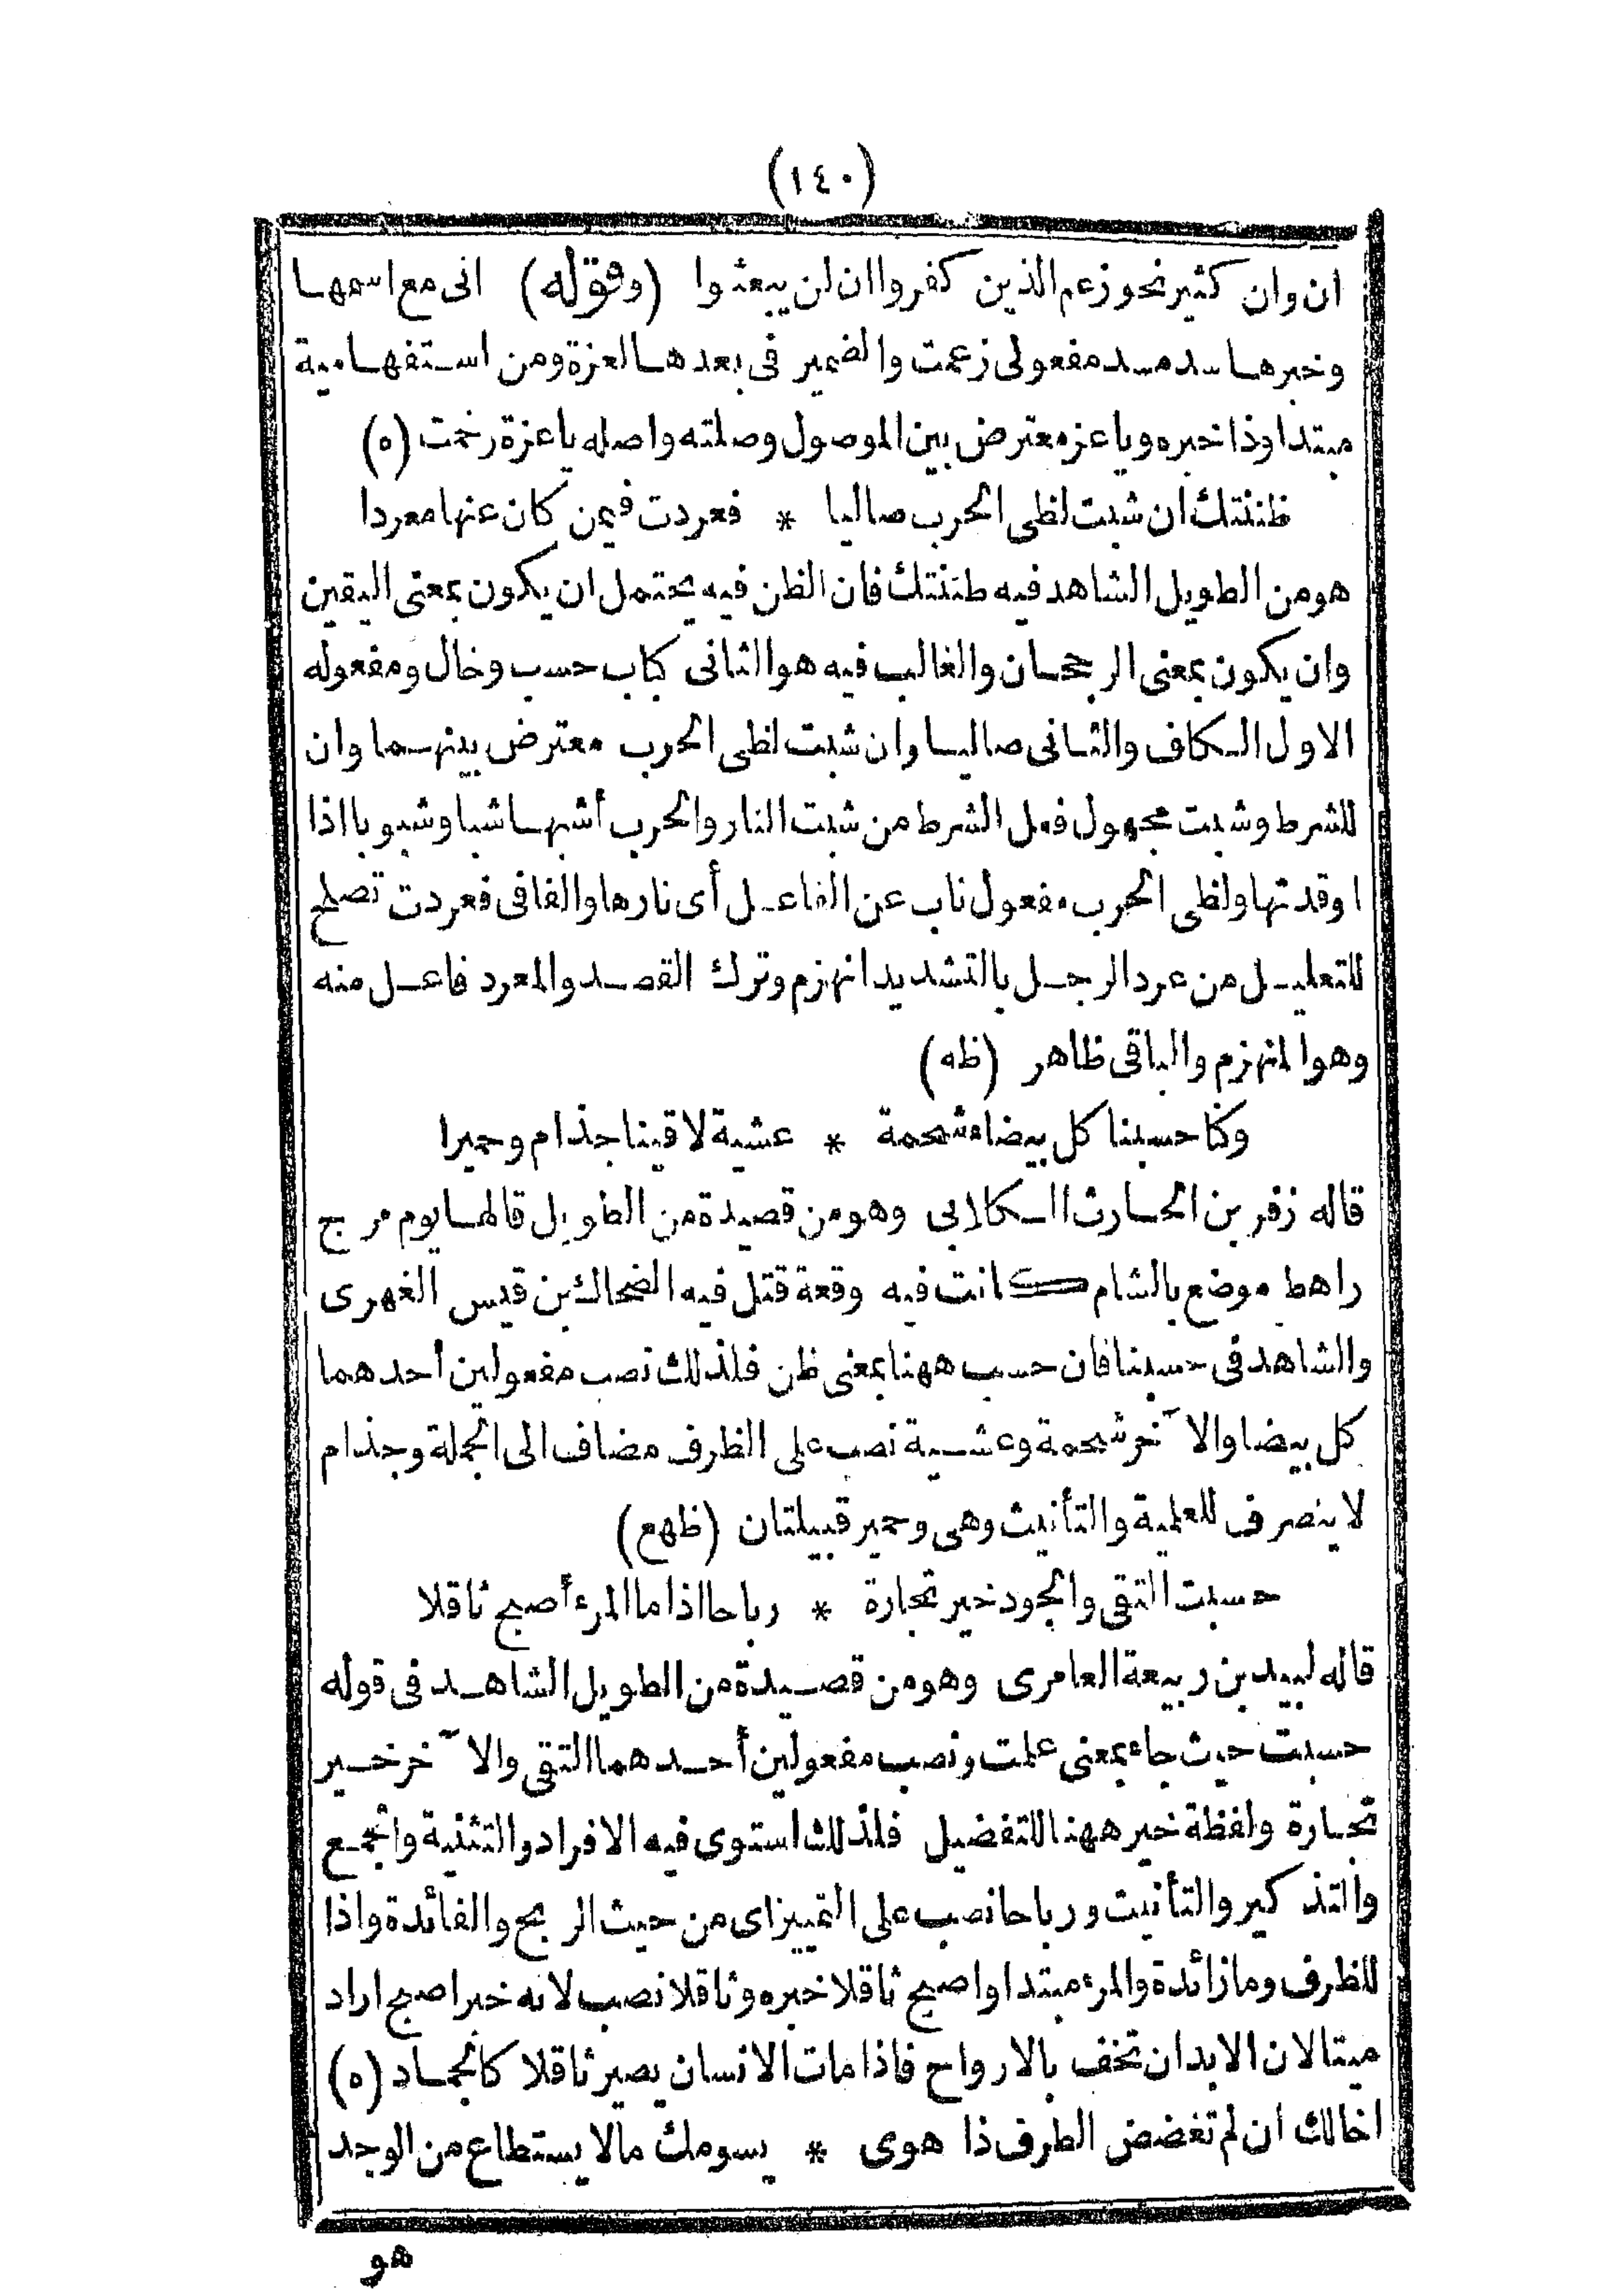 (١٤٠)
ان وان كثير نحو زعم الذين كفروا ان لن يبعثوا (وقوله) انى مع اسمها
وخبرها سد مسد مفعولى زعمت والضمير فى بعدها لعزة ومن استفهامية
مبتدا وذا خبره ويا عز معترض بين الموصول وصلته واصله يا عزة رخمت (ه)
ظننتك ان شبت لظى الحرب صاليا * فعردت فيمن كان عنها معردا
هو من الطويل الشاهد فيه ظننتك فان الظن فيه يحتمل ان يكون بمعنى اليقين
وان يكون بمعنى الرجحان والغالب فيه هو الثانى كباب حسب وخال ومفعوله
الاول الكاف والثانى صاليا وان شبت لظى الحرب معترض بينهما وان
للشرط وشبت مجهول فعل الشرط من شبت النار والحرب أشبها شبا وشبوبا اذا
اوقدتها ولظى الحرب مفعول ناب عن الفاعل أى نارها والفا فى فعردت تصلح
للتعليل من عرد الرجل بالتشديد انهزم وترك القصد والمعرد فاعل منه
وهو المنهزم والباقى ظاهر (ظه)
وكنا حسبنا كل بيضاء شحمة * عشية لاقينا جذام وحميرا
قاله زفر بن الحارث الكلابى وهو من قصيدة من الطويل قالها يوم مرج
راهط موضع بالشام كانت فيه وقعة قتل فيه الضحاك بن قيس الفهرى
والشاهد فى حسبنا فان حسب ههنا بمعنى ظن فلذلك نصب مفعولين أحدهما
كل بيضا والآخر شحمة وعشية نصب على الظرف مضاف الى الجملة وجذام
لا ينصرف للعلمية والتأنيث وهى وحمير قبيلتان (ظهع)
حسبت التقى والجود خير تجارة * رباحا اذا ما المرء أصبح ثاقلا
قاله لبيد بن ربيعة العامرى وهو من قصيدة من الطويل الشاهد فى قوله
حسبت حيث جاء بمعنى علمت ونصب مفعولين أحدهما التقى والآخر خير
تجارة ولفظة خير ههنا للتفضيل فلذلك استوى فيه الافراد والتثنية والجمع
والتذكير والتأنيث ورباحا نصب على التمييز اى من حيث الربح والفائدة واذا
للظرف وما زائدة والمرء مبتدا واصبح ثاقلا خبره وثاقلا نصب لانه خبر اصبح اراد
ميتا لان الابدان تخف بالارواح فاذا مات الانسان يصير ثاقلا كالجماد (ه)
اخالك ان لم تغضض الطرف ذا هوى * يسومك مالا يستطاع من الوجد
هو